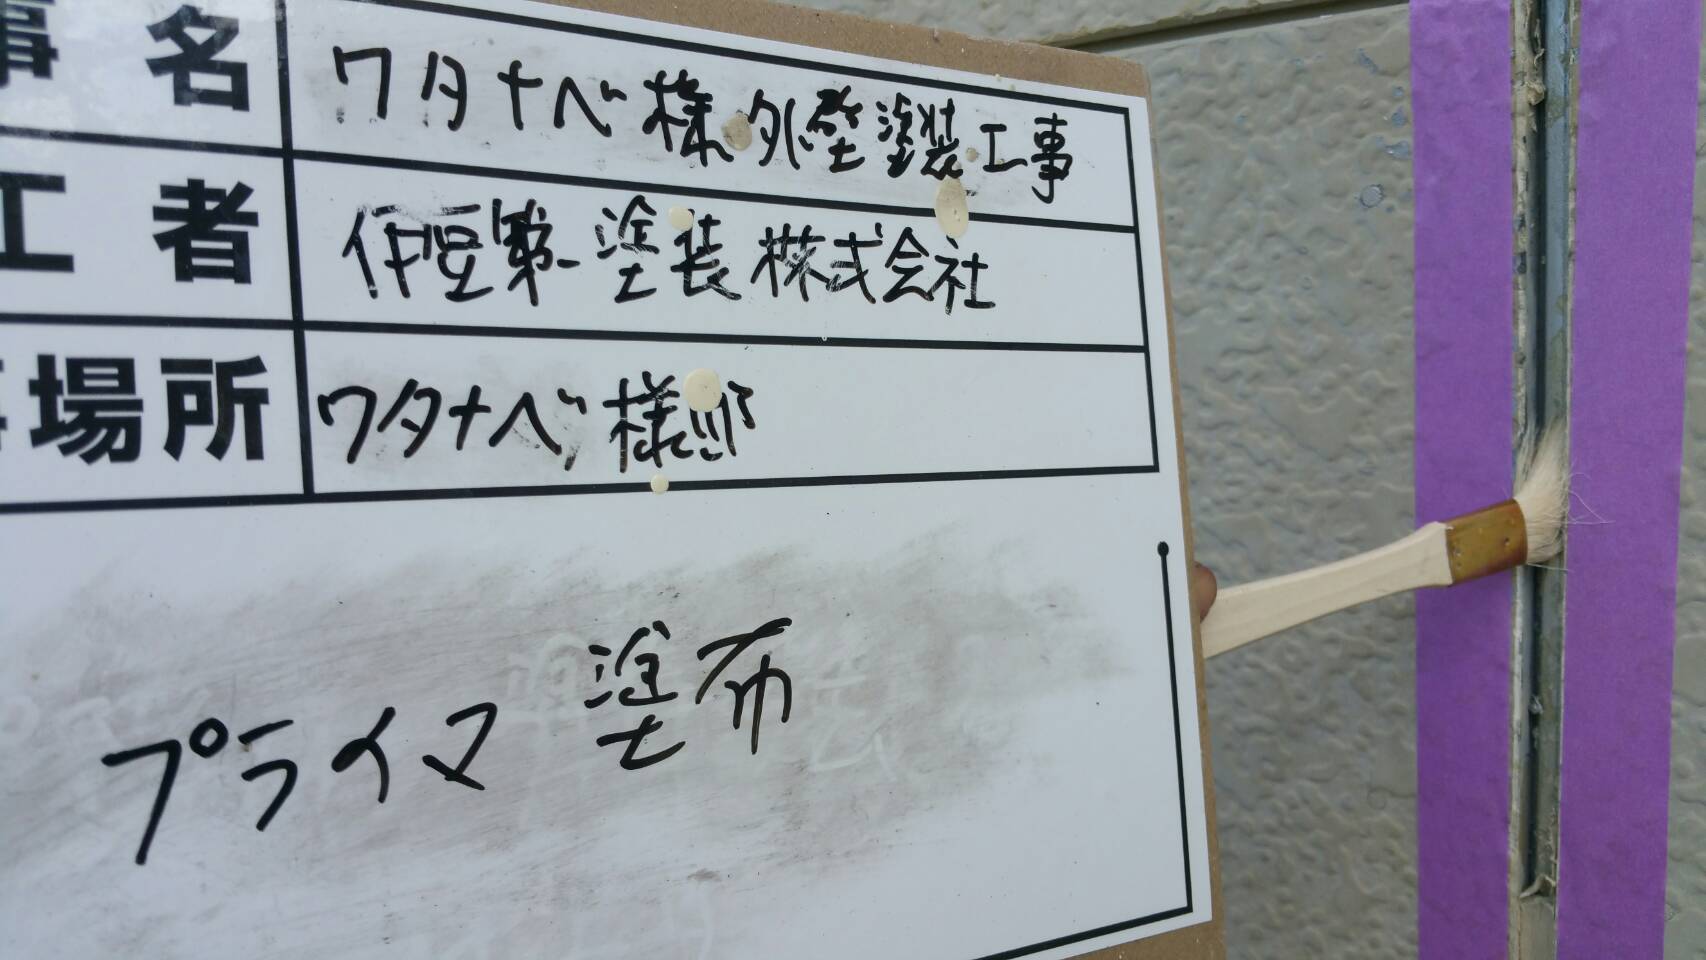 事名 ワタナベ様外壁塗装工事
工者 伊豆第一塗装株式会社
場所 ワタナベ様邸
プライマ塗布